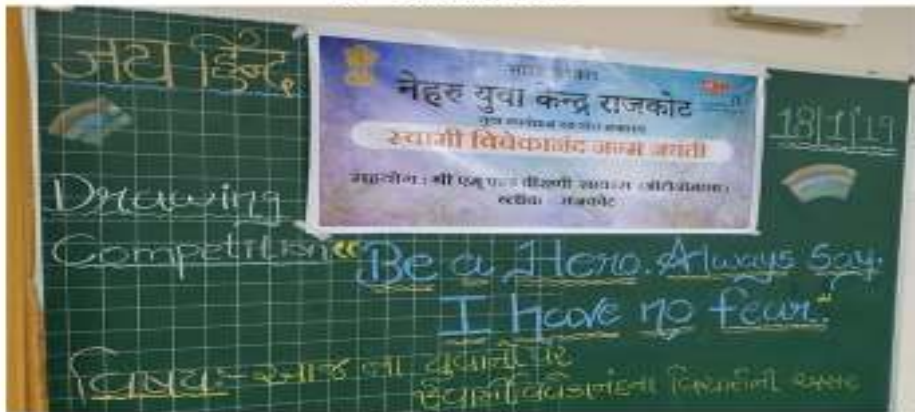 જય હિન્દ
भारत सरकार
नेहरु युवा केन्द्र राजकोट
स्वामी विवेकानंद जन्म जयंती
18/1/19
Drawing
Competition
"Be a Hero. Always Say.
I have no fear."
વિષય:- આજ ના યુવાનો પર
સ્વામી વિવેકાનંદના વિચારોની અસર